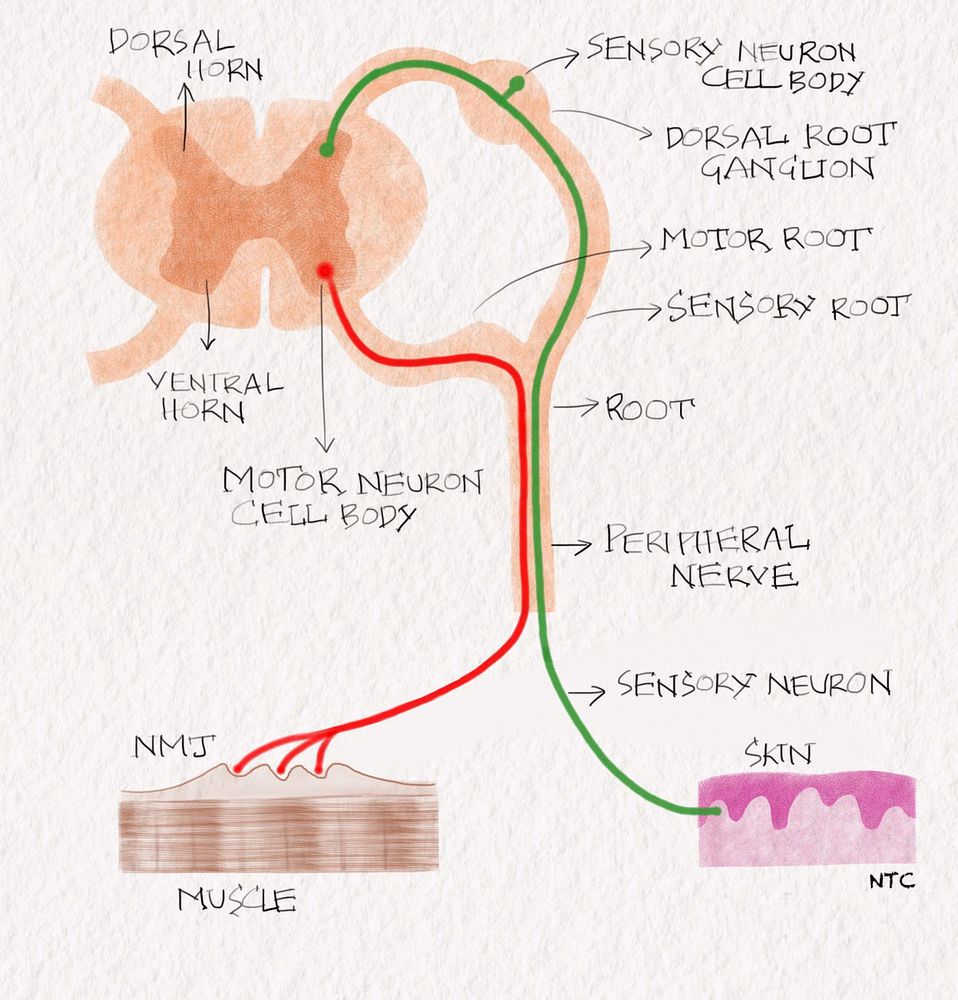 DORSAL
HORN
SENSORY NEURON
CELL BODY
DORSAL ROOT
GANGLION
MOTOR ROOT
SENSORY ROOT
VENTRAL
HORN
ROOT
MOTOR NEURON
CELL BODY
PERIPHERAL
NERVE
SENSORY NEURON
NMJ
SKIN
MUSCLE
NTC